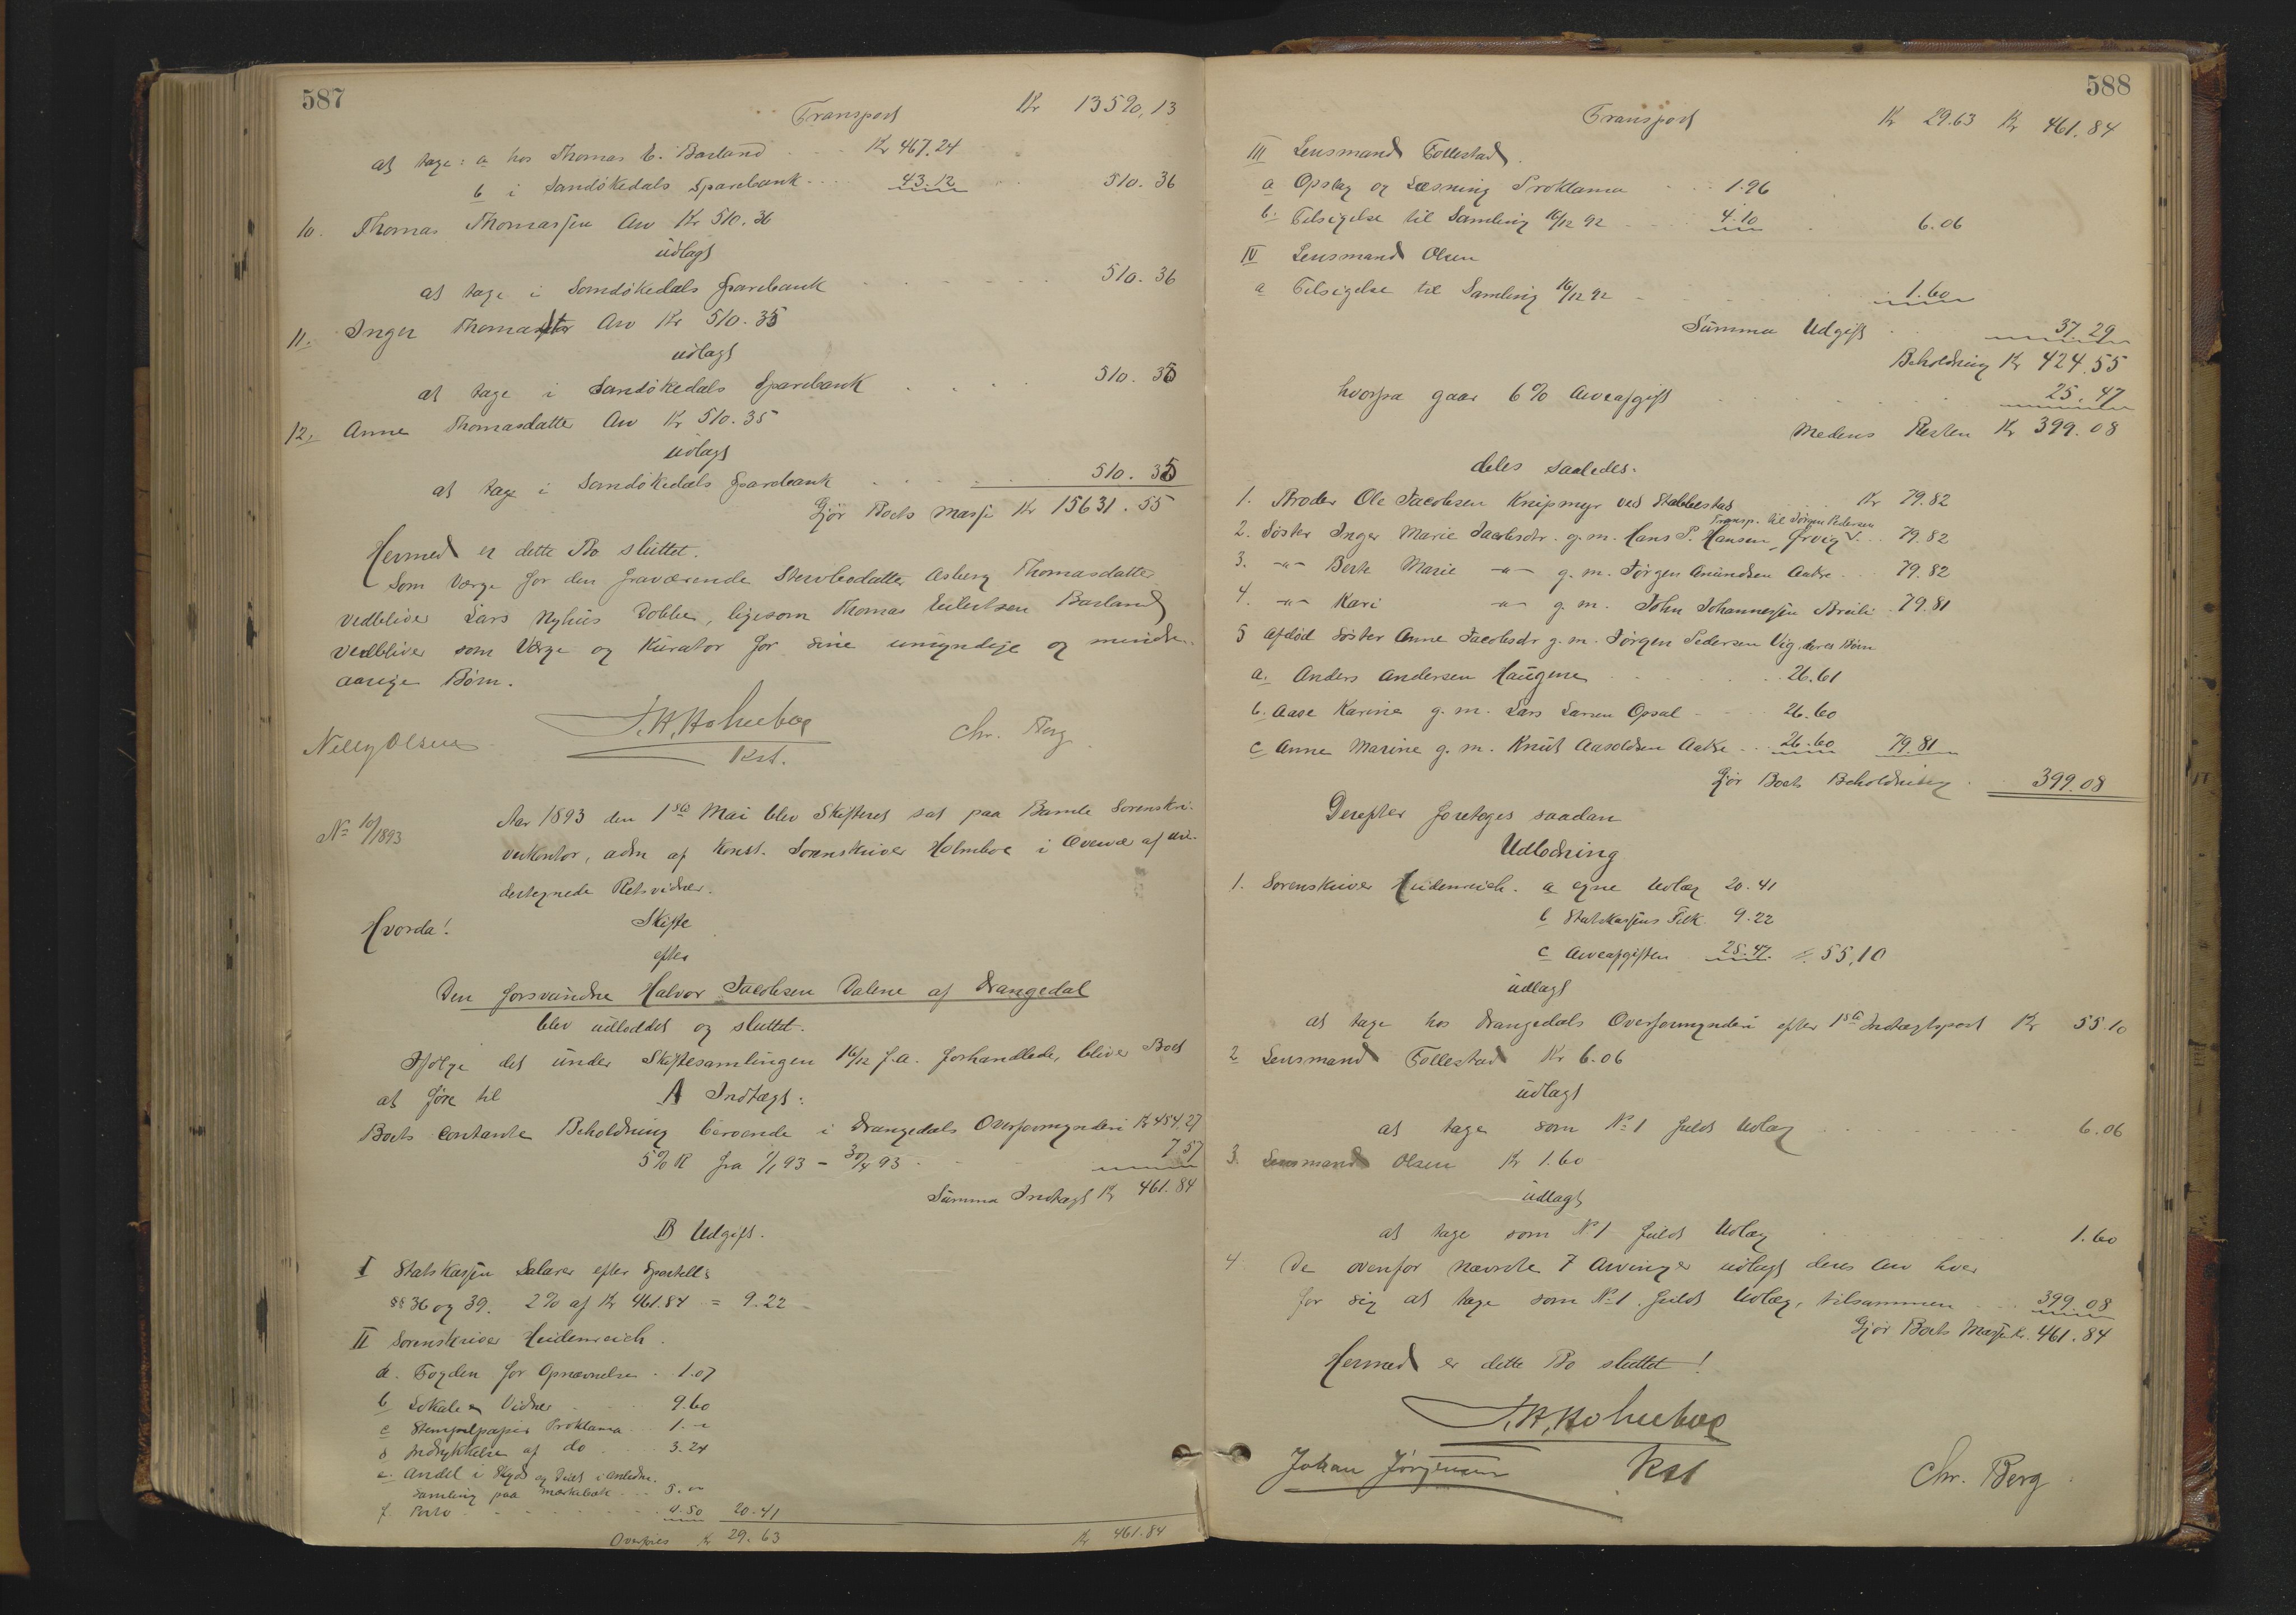 587
Transport Kr 13590,13
at tage: a hos Thomas E. Barland Kr 467.24
b i Sandökedals Sparebank 43.12 510.36
10. Thomas Thomassen Arv Kr 510.36
udlagt
at tage i Sandökedals Sparebank 510.36
11. Inger Thomasdtr Arv Kr 510.35
udlagt
at tage i Sandökedals Sparebank 510.35
12. Anne Thomasdatter Arv Kr 510.35
udlagt
at tage i Sandökedals Sparebank 510.35
Gjör Boets Masse Kr 15631.55
Hermed er dette Bo sluttet.
Som Værge for den fraværende Stervbodatter Asberg Thomasdatter
vedbliver Lars Nyhus Dobbe, ligesom Thomas Eilertsen Barland
vedbliver som Værge og Kurator for sine umyndige og mindre-
aarige Børn.
Nelly Olsen J.H. Holmboe Chr. Berg
Kst.
No 10/1893
Aar 1893 den 1ste Mai blev Skifteret sat paa Bamle Sorenskri-
verkontor, adm af Konst. Sorenskriver Holmboe i Overvær af un-
dertegnede Retsvidner.
Hvorda! Skifte
efter
Den forsvundne Halvor Jacobsen Dalene af Drangedal
blev udloddet og sluttet.
Ifölge det under Skiftesamlingen 16/12 f.a. forhandlede, bliver Boet
at före til A Indtægt:
Boets contante Beholdning beroende i Drangedals Overformynderi Kr 454,27
5% R fra 1/1 93 - 30/4 93 7 57
Summa Indtægt Kr 461.84
B Udgift.
I Statskassen Salarer efter Sportell:
§§ 36 og 39. 2% af Kr 461.84 = 9.22
II Sorenskriver Heidenreich.
a. Fogden for Opnævnelse 1.07
b Lokale & Vidner 9.60
c Stempelpapir Proklama 1.-
d Indrykkelse af do 3.24
e. Andel i Skyds og Diæt i anledn.
Samling paa
f Porto 4.50 20.41
Overföres Kr 29.63 Kr 461.84
588
Transport Kr 29.63 Kr 461.84
III Lensmand Tollestad.
a Opslag og Læsning Proklama 1.96
b. Tilsigelse til Samling 16/12 92 4.10 6.06
IV Lensmand Olsen
a Tilsigelse til Samling 16/12 92 1.60
Summa Udgift 37.29
Beholdning Kr 424.55
hvorpaa gaar 6% Arveafgift 25.47
Medens Resten Kr 399.08
deles saaledes:
1. Broder Ole Jacobsen Knipmyr ved Stabbestad Kr 79.82
Transp. til Jörgen Pedersen
2. Söster Inger Marie Jacobsdr. g.m. Hans P. Hansen, Ørvig 79.82
3. -"- Berte Marie -"- g.m. Jörgen Amundsen Aakre 79.82
4. -"- Kari -"- g.m. John Johannessen Breili 79.81
5 Afdöd Söster Anne Jacobsdr g.m. Jörgen Pedersen Vig, deres Börn
a. Anders Andersen Haugene 26.61
b. Aase Karine g.m. Lars Larsen Opsal 26.60
c Anne Marine g.m. Knut Aasoldsen Aakre 26.60 79.81
Gjör Boets Beholdning 399.08
Derefter foretoges saadan
Udlodning
1. Sorenskriver Heidenreich. a egne Udlæg 20.41
b Statskassens Tilk. 9.22
c Arveafgiften 25.47 55,10
udlagt
at tage hos Drangedals Overformynderi efter 1ste Indtægtspost Kr 55.10
2 Lensmand Tollestad Kr 6.06
udlagt
at tage som No 1 fuldt Udlæg 6.06
3. Lensmand Olsen Kr 1.60
udlagt
at tage som No 1 fuldt Udlæg 1.60
4 De ovenfor nævnte 7 Arvinger udlagt deres Arv hver
for sig at tage som No 1 fuldt Udlæg, tilsammen 399.08
Gjör Boets Masse Kr. 461.84
Hermed er dette Bo sluttet!
J.H. Holmboe
Johan Jörgensen Kst Chr. Berg